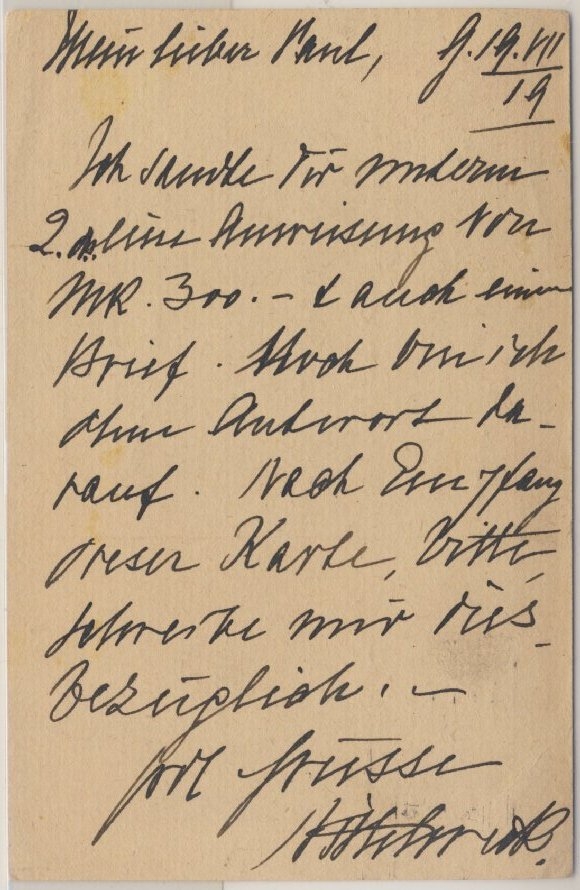 Mein lieber Paul, G. 19. VII
19
Ich sandte Dir unterm
2. ds. eine Anweisung von
MK. 300.- & auch einen
Brief. Noch bin ich
ohne Antwort da-
rauf. Nach Empfang
dieser Karte, bitte
schreibe mir dies-
bezüglich. -
Grüsse